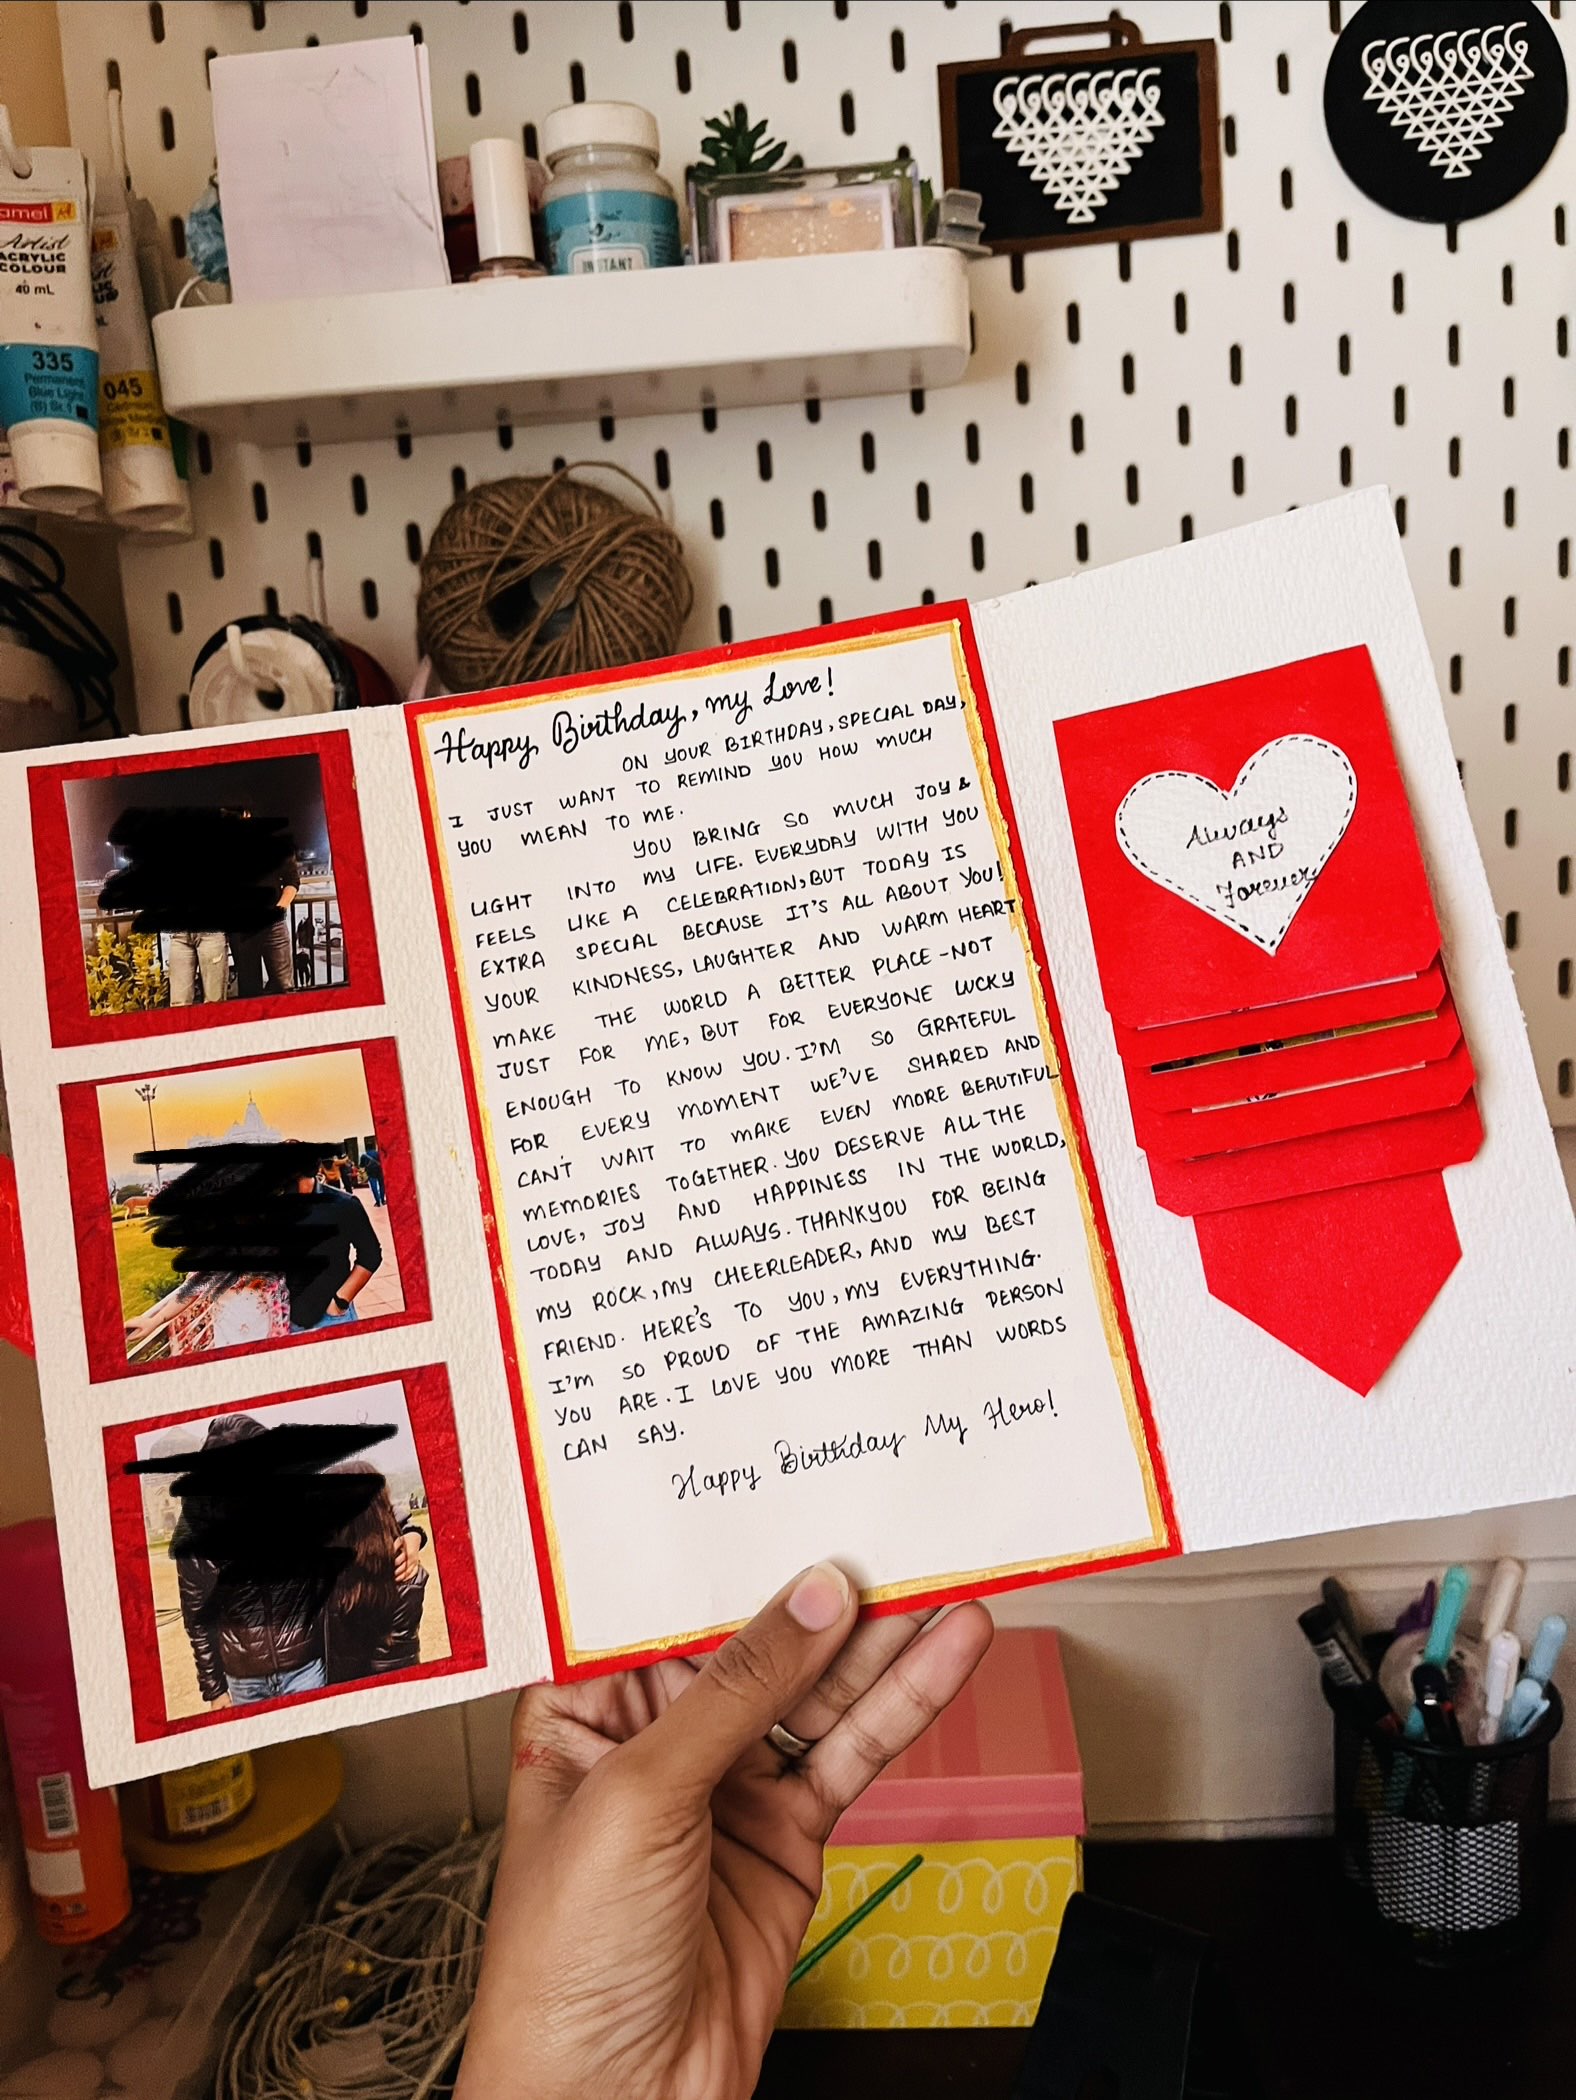 amel
Artist
ACRYLIC
COLOUR
40 mL
335
Permanent
Blue Light
045
INSTANT
Happy Birthday, my Love!
ON YOUR BIRTHDAY, SPECIAL DAY,
I JUST WANT TO REMIND YOU HOW MUCH
YOU MEAN TO ME.
YOU BRING SO MUCH JOY &
LIGHT INTO MY LIFE. EVERYDAY WITH YOU
FEELS LIKE A CELEBRATION, BUT TODAY IS
EXTRA SPECIAL BECAUSE IT'S ALL ABOUT YOU!
YOUR KINDNESS, LAUGHTER AND WARM HEART
MAKE THE WORLD A BETTER PLACE - NOT
JUST FOR ME, BUT FOR EVERYONE LUCKY
ENOUGH TO KNOW YOU. I'M SO GRATEFUL
FOR EVERY MOMENT WE'VE SHARED AND
CAN'T WAIT TO MAKE EVEN MORE BEAUTIFUL
MEMORIES TOGETHER. YOU DESERVE ALL THE
LOVE, JOY AND HAPPINESS IN THE WORLD,
TODAY AND ALWAYS. THANKYOU FOR BEING
MY ROCK, MY CHEERLEADER, AND MY BEST
FRIEND. HERE'S TO YOU, MY EVERYTHING.
I'M SO PROUD OF THE AMAZING PERSON
YOU ARE. I LOVE YOU MORE THAN WORDS
CAN SAY.
Happy Birthday My Hero!
Always
AND
Forever